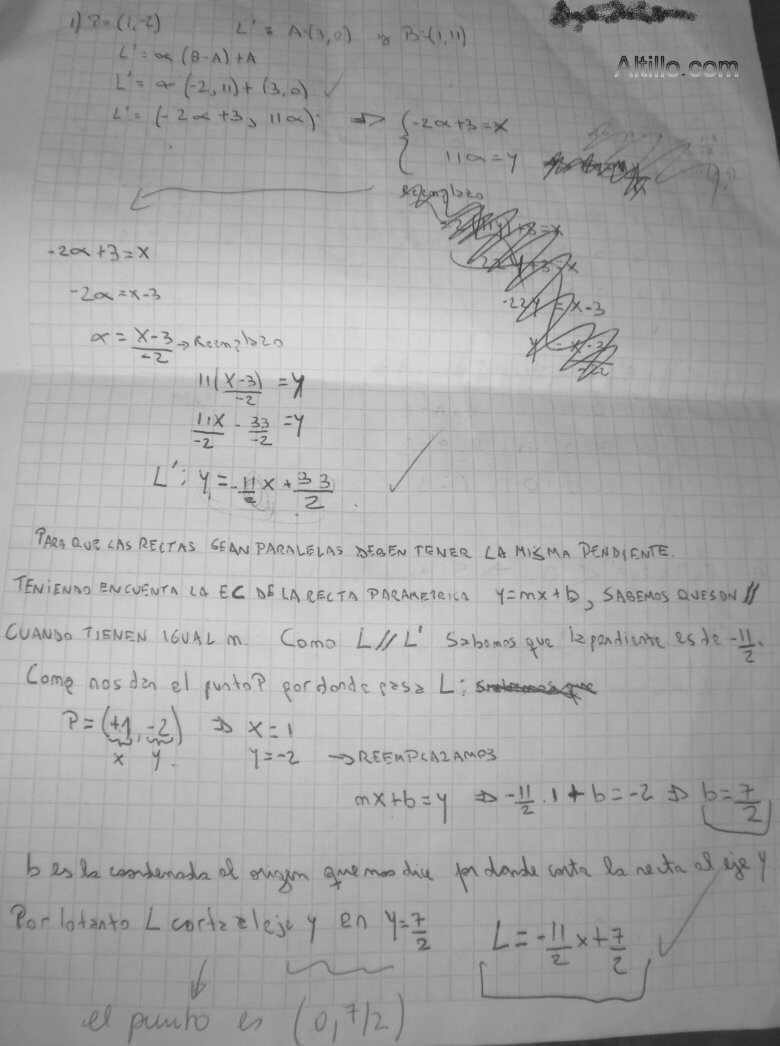 1) P=(1,-2) L' = A=(3,0) y B=(1,11)
Altillo.com
L' = α (B-A)+A
L' = α (-2,11)+(3,0) ✓
L' = (-2α+3, 11α) ⇒ { -2α+3=X
11α=Y
Reemplazo
-22Y = X-3
-2α+3=X
-2α=X-3
α = X-3/-2 → Reemplazo
11(X-3)/-2 = Y
11X/-2 - 33/-2 = Y
L': Y = -11/2 X + 33/2 ✓
PARA QUE LAS RECTAS SEAN PARALELAS DEBEN TENER LA MISMA PENDIENTE.
TENIENDO EN CUENTA LA EC DE LA RECTA PARAMETRICA Y=mx+b, SABEMOS QUE SON //
CUANDO TIENEN IGUAL m. Como L // L' Sabemos que la pendiente es de -11/2.
Como nos dan el punto P por donde pasa L:
P = (+1, -2) ⇒ X = 1
x y. Y=-2 → REEMPLAZAMOS
mx+b = y ⇒ -11/2 . 1 + b = -2 ⇒ b = 7/2
b es la coordenada al origen que nos dice por donde corta la recta al eje Y
Por lo tanto L corta el eje y en Y=7/2 L = -11/2 x + 7/2 ✓
el punto es (0, 7/2)